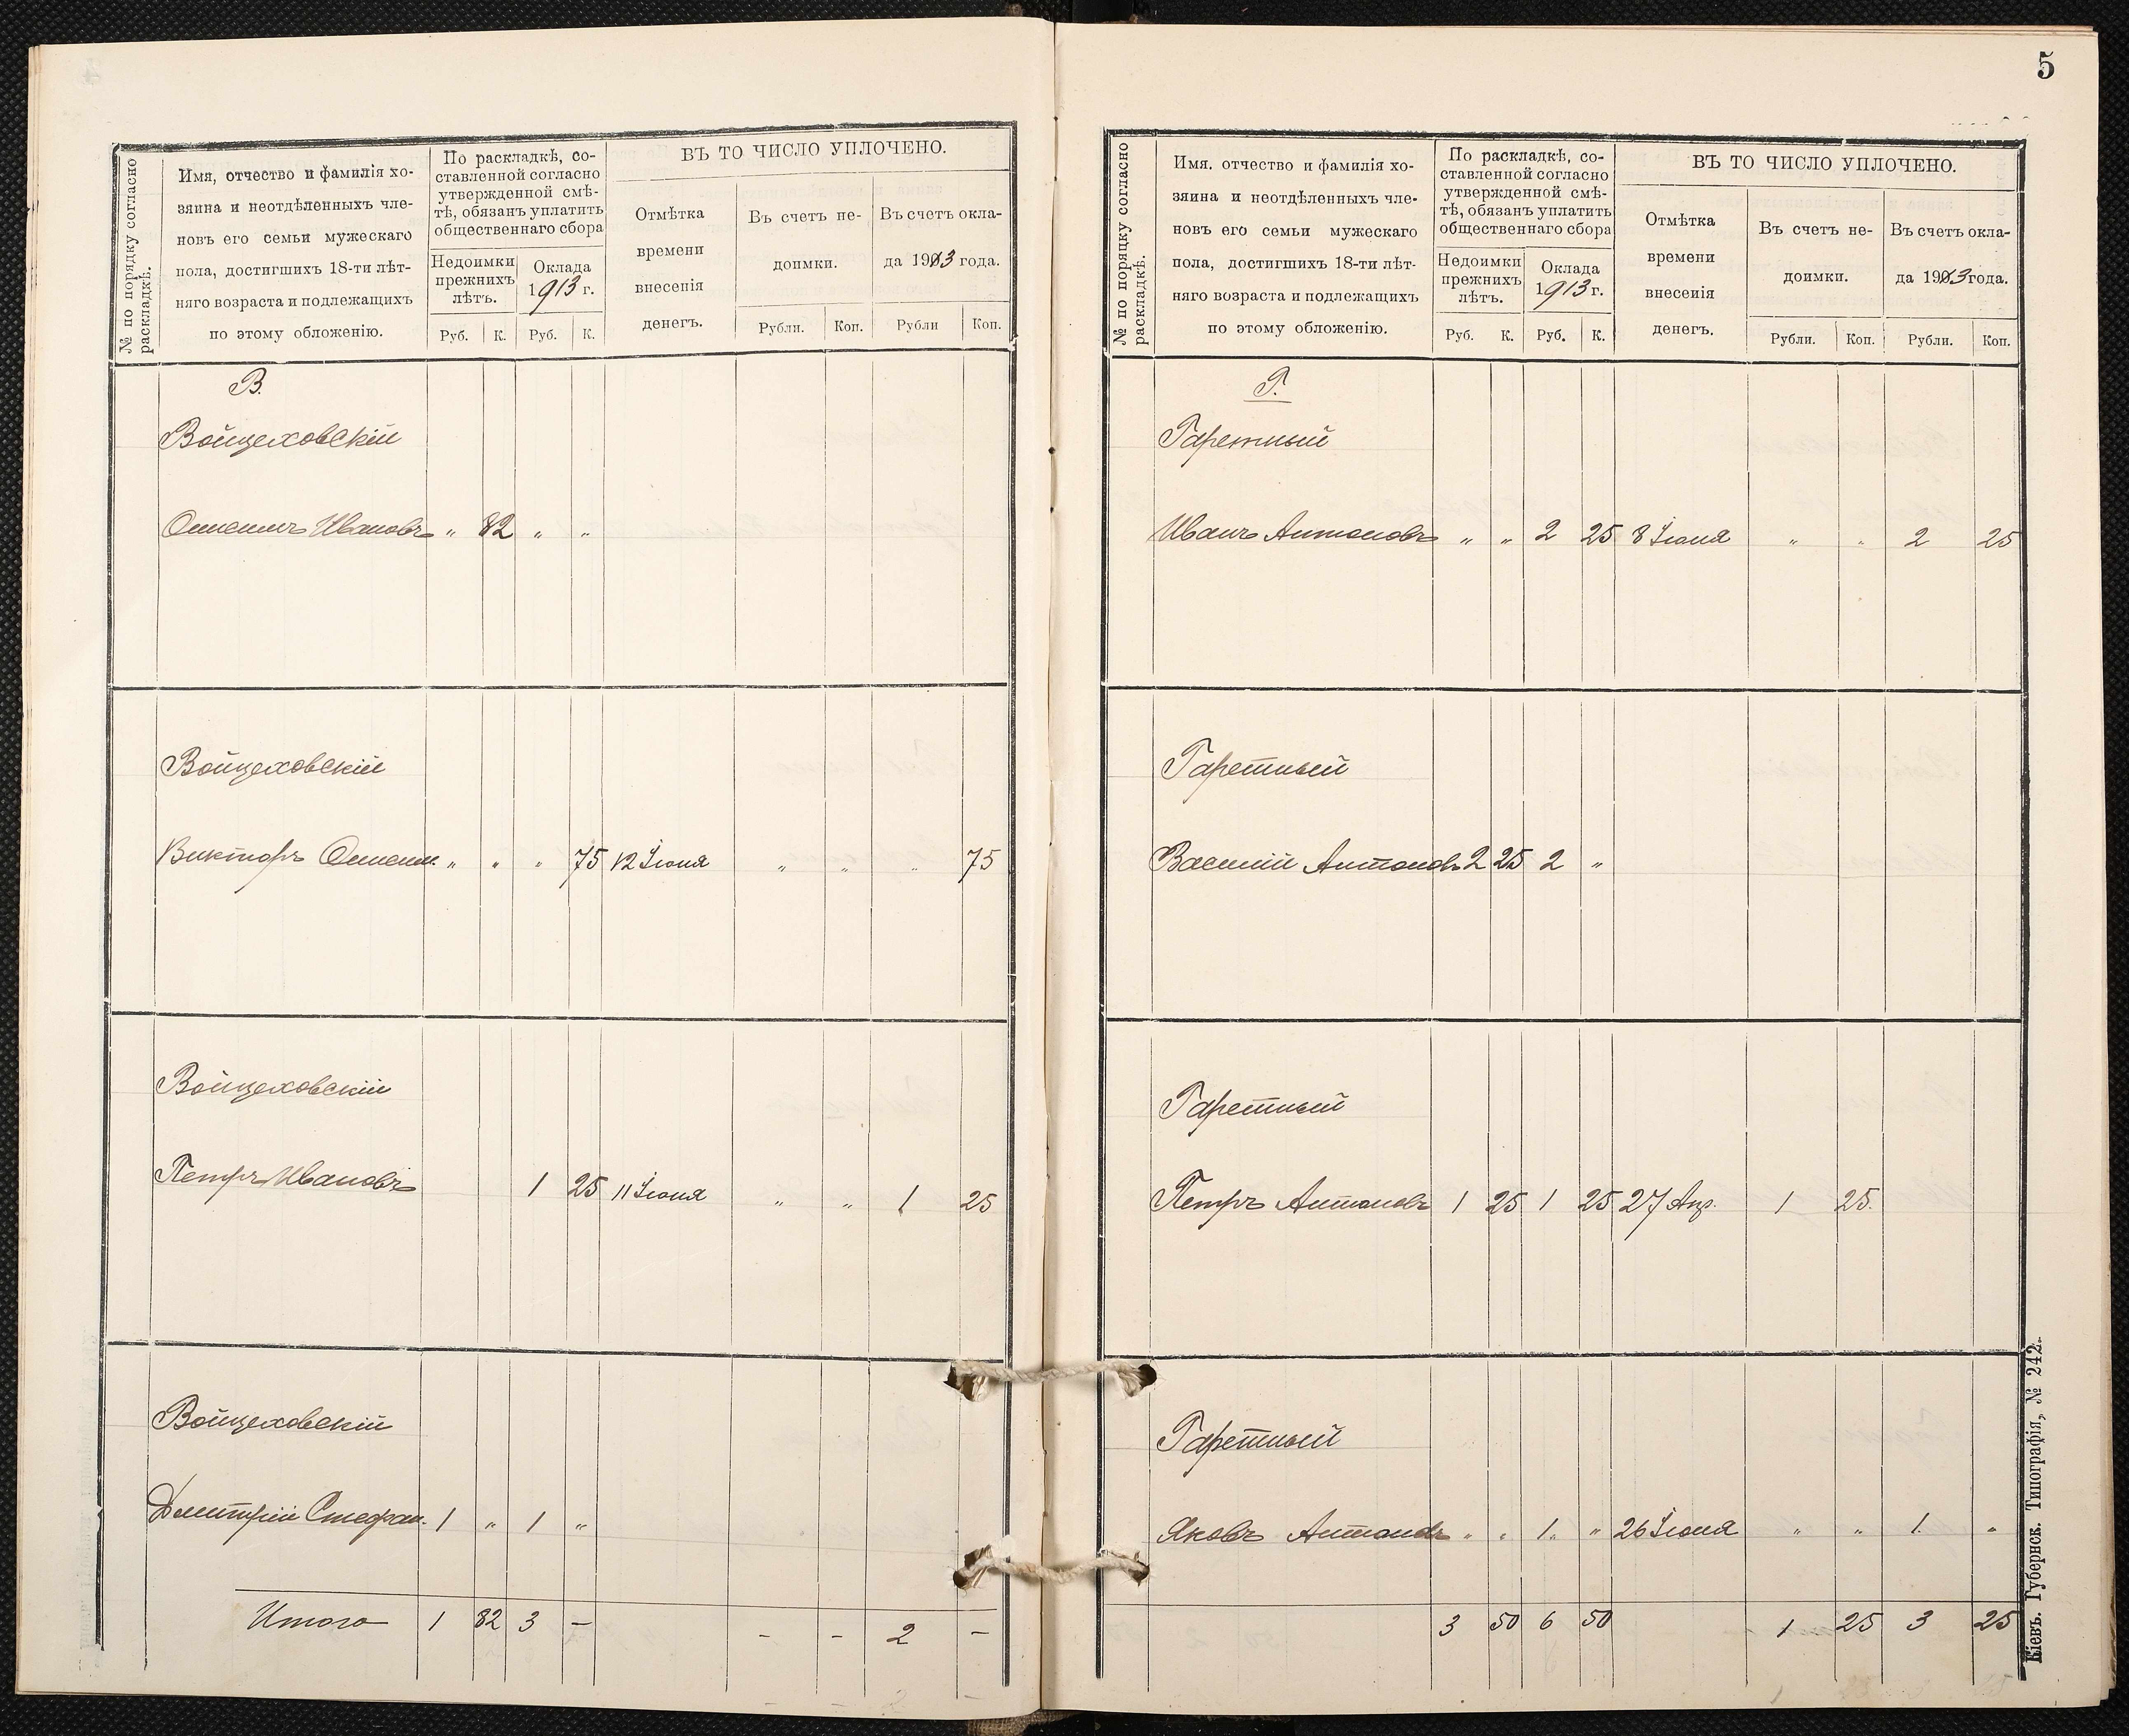 5
№ по порядку согласно
раскладкѣ.
Имя, отчество и фамилія хо-
зяина и неотдѣленныхъ чле-
новъ его семьи мужескаго
пола, достигшихъ 18-ти лѣт-
няго возраста и подлежащихъ
по этому обложенію.
По раскладкѣ, со-
ставленной согласно
утвержденной смѣ-
тѣ, обязанъ уплатить
общественнаго сбора
Недоимки
прежнихъ
лѣтъ.
Оклада
1913 г.
Руб. К. Руб. К.
ВЪ ТО ЧИСЛО УПЛОЧЕНО.
Отмѣтка
времени
внесенія
денегъ.
Въ счетъ не-
доимки.
Въ счетъ окла-
да 1913 года.
Рубли. Коп. Рубли Коп.
В.
Войцеховскій
Ивановъ " 82 " "
Войцеховскій
Викторъ " " " 75 12 Іюня " " " 75
Войцеховскій
Петръ Ивановъ 1 25 11 Іюня " " 1 25
Войцеховскій
Дмитрій Стефан. 1 " 1 "
Итого 1 82 3 — - - 2 -
№ по порядку согласно
раскладкѣ.
Имя. отчество и фамилія хо-
зяина и неотдѣленныхъ чле-
новъ его семьи мужескаго
пола, достигшихъ 18-ти лѣт-
няго возраста и подлежащихъ
по этому обложенію.
По раскладкѣ, со-
ставленной согласно
утвержденной смѣ-
тѣ, обязанъ уплатить
общественнаго сбора
Недоимки
прежнихъ
лѣтъ.
Оклада
1913 г.
Руб. К. Руб. К.
ВЪ ТО ЧИСЛО УПЛОЧЕНО.
Отмѣтка
времени
внесенія
денегъ.
Въ счетъ не-
доимки.
Въ счетъ окла-
да 1913 года.
Рубли. Коп. Рубли. Коп.
Г.
Гаретный
Иванъ Антоновъ " " 2 25 8 Іюня " " 2 25
Гаретный
Василій Антоновъ 2 25 2 "
Гаретный
Петръ Антоновъ 1 25 1 25 27 Апр. 1 25.
Гаретный
Яковъ Антоновъ " " 1. " 26 Іюня " " 1. "
3 50 6 50 1 25 3 25
Кіевъ. Губернск. Типографія, № 242.